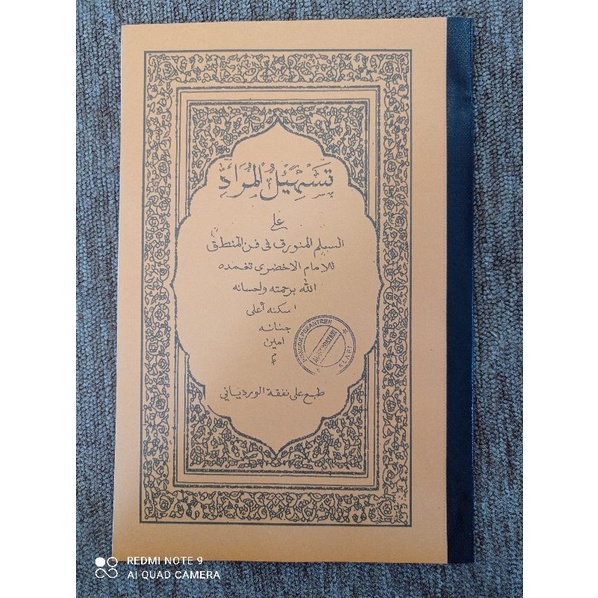 تَسْهِيْلُ الْمُرَادْ
على
السلم المنورق فى فن المنطق
للامام الاخضرى تغمده
الله برحمته واحسانه
اسكنه أعلى
جنانه
امين
طبع على نفقة الوردياني
REDMI NOTE 9
AI QUAD CAMERA